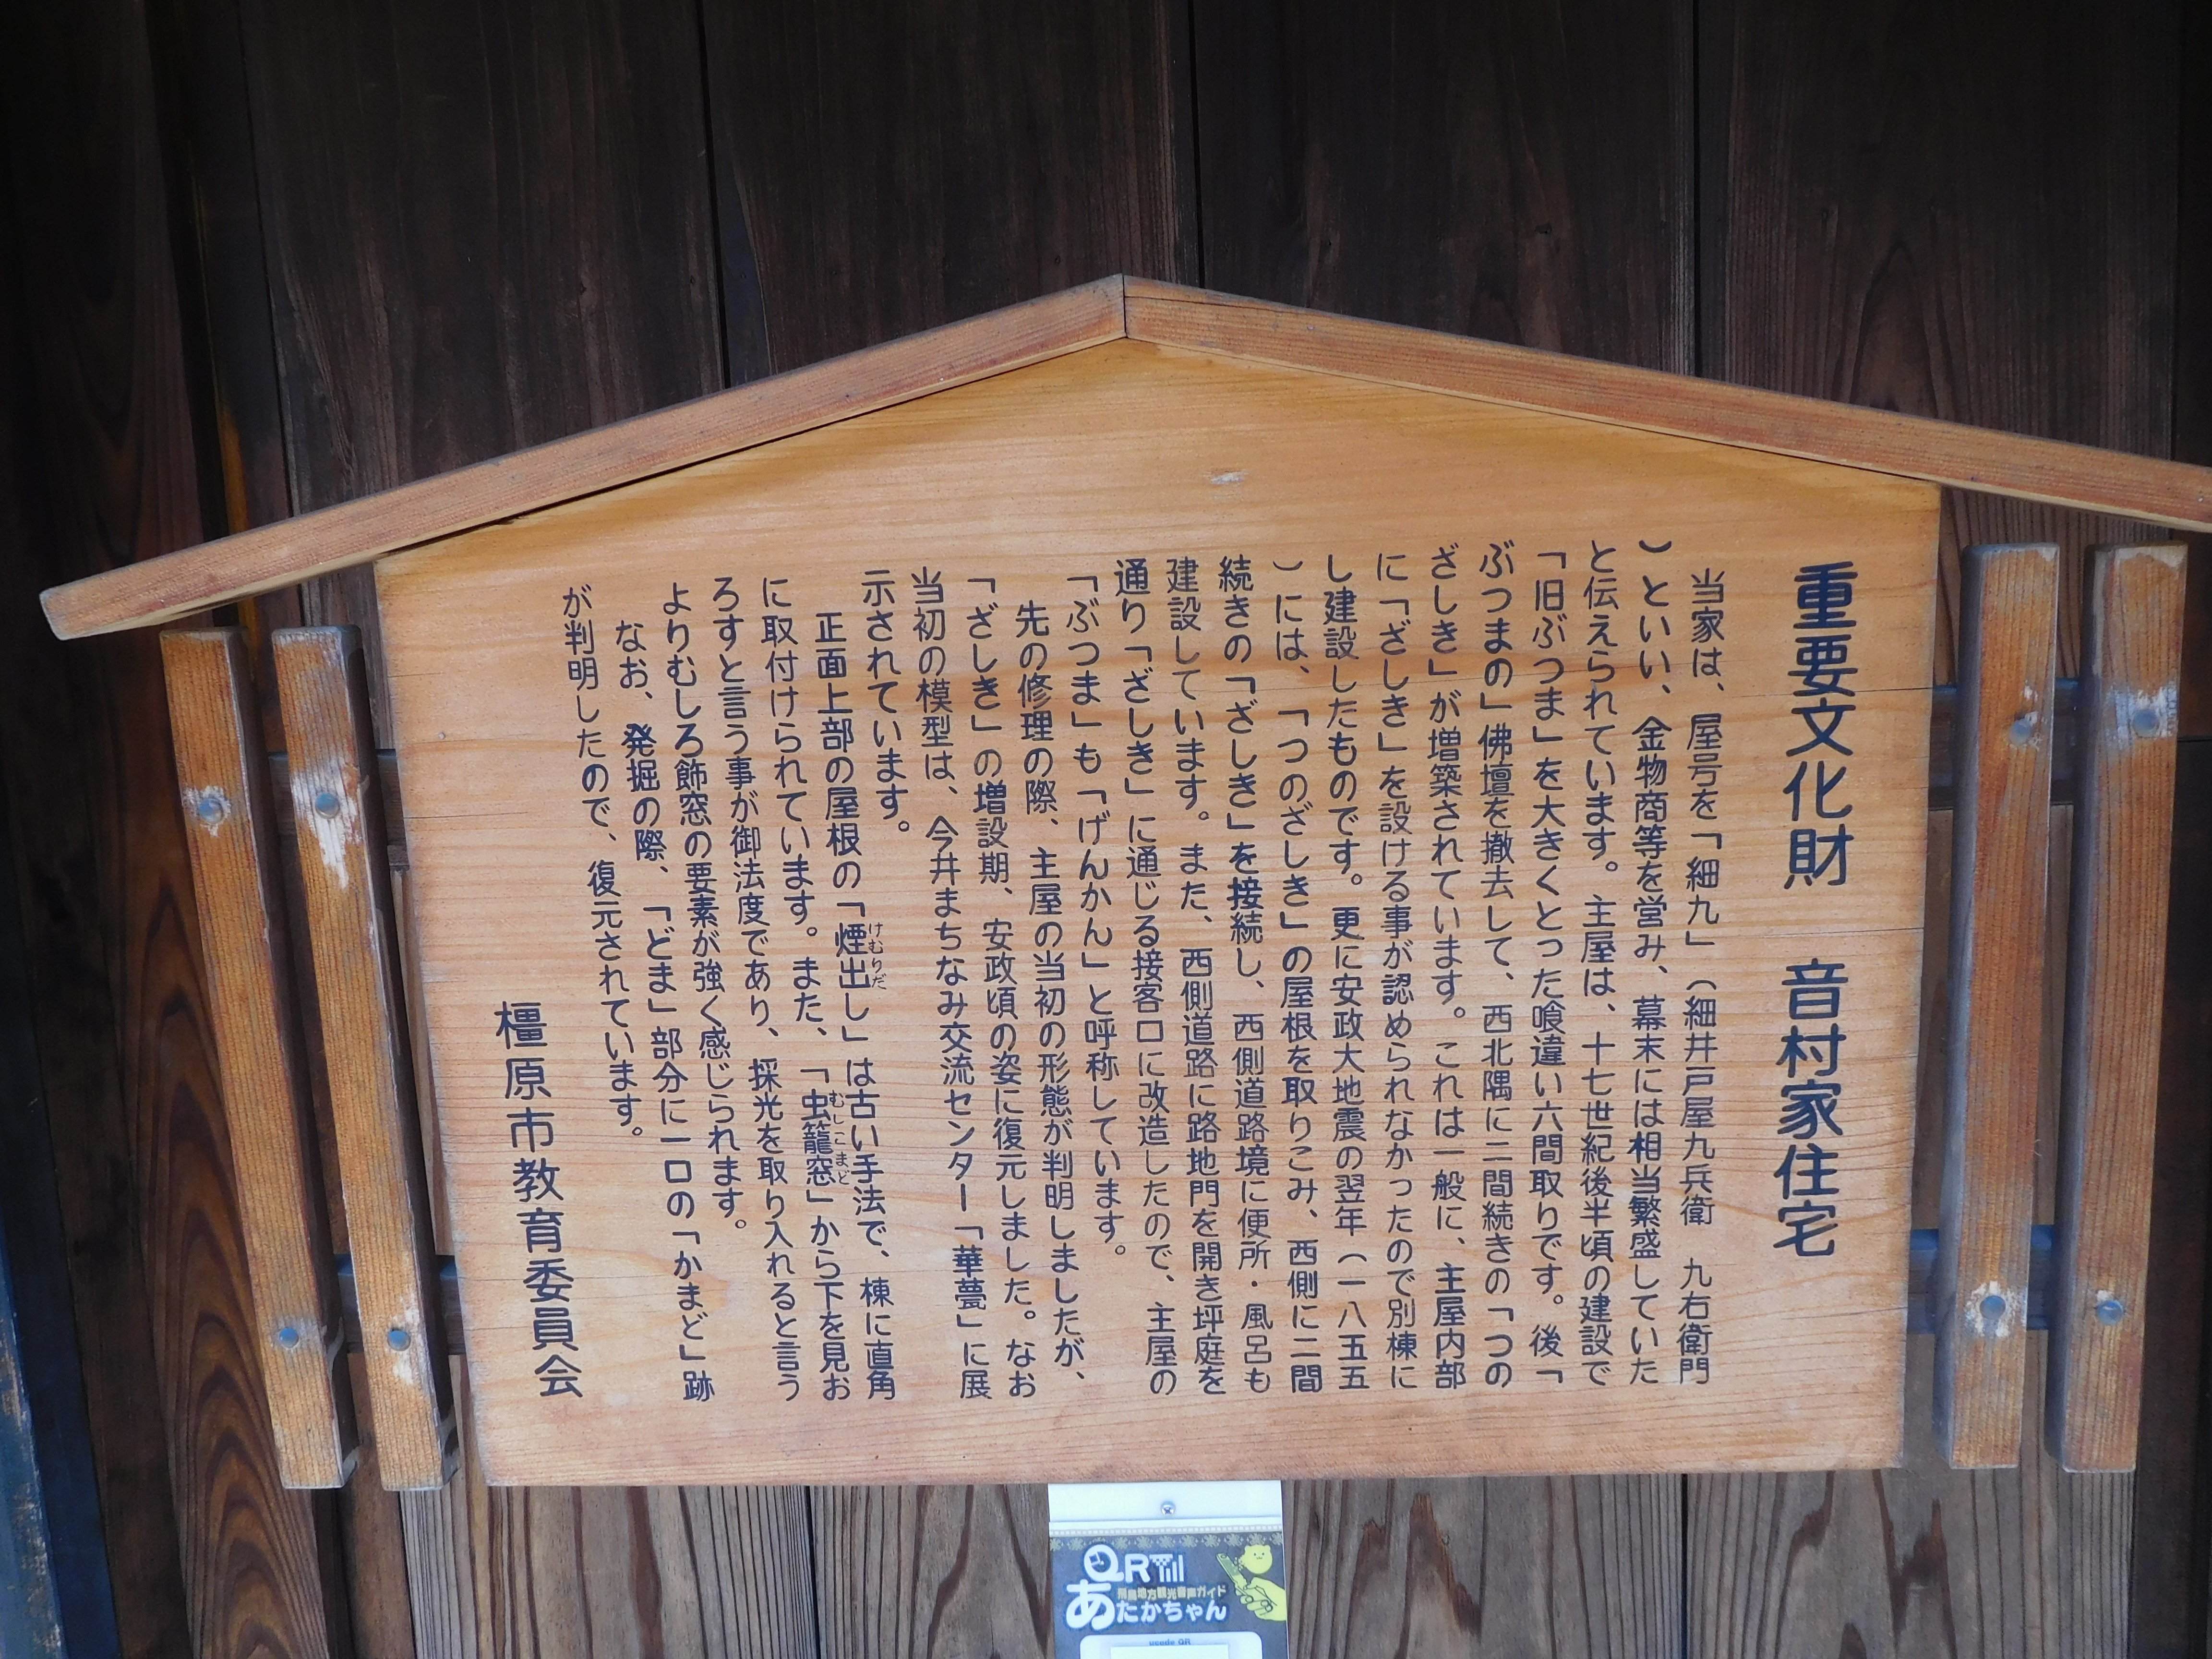 重要文化財　音村家住宅
当家は、屋号を「細九」（細井戸屋九兵衛　九右衛門
）といい、金物商等を営み、幕末には相当繁盛していた
と伝えられています。主屋は、十七世紀後半頃の建設で
「旧ぶつま」を大きくとった喰違い六間取りです。後「
ぶつまの」佛壇を撤去して、西北隅に二間続きの「つの
ざしき」が増築されています。これは一般に、主屋内部
に「ざしき」を設ける事が認められなかったので別棟に
し建設したものです。更に安政大地震の翌年（一八五五
）には、「つのざしき」の屋根を取りこみ、西側に二間
続きの「ざしき」を接続し、西側道路境に便所・風呂も
建設しています。また、西側道路に路地門を開き坪庭を
通り「ざしき」に通じる接客口に改造したので、主屋の
「ぶつま」も「げんかん」と呼称しています。
先の修理の際、主屋の当初の形態が判明しましたが、
「ざしき」の増設期、安政頃の姿に復元しました。なお
当初の模型は、今井まちなみ交流センター「華甍」に展
示されています。
正面上部の屋根の「煙出し」は古い手法で、棟に直角
けむりだ
に取付けられています。また、「虫籠窓」から下を見お
むしこまど
ろすと言う事が御法度であり、採光を取り入れると言う
よりむしろ飾窓の要素が強く感じられます。
なお、発掘の際、「どま」部分に一口の「かまど」跡
が判明したので、復元されています。
橿原市教育委員会
QR
飛鳥地方観光音声ガイド
あたかちゃん
ucode QR